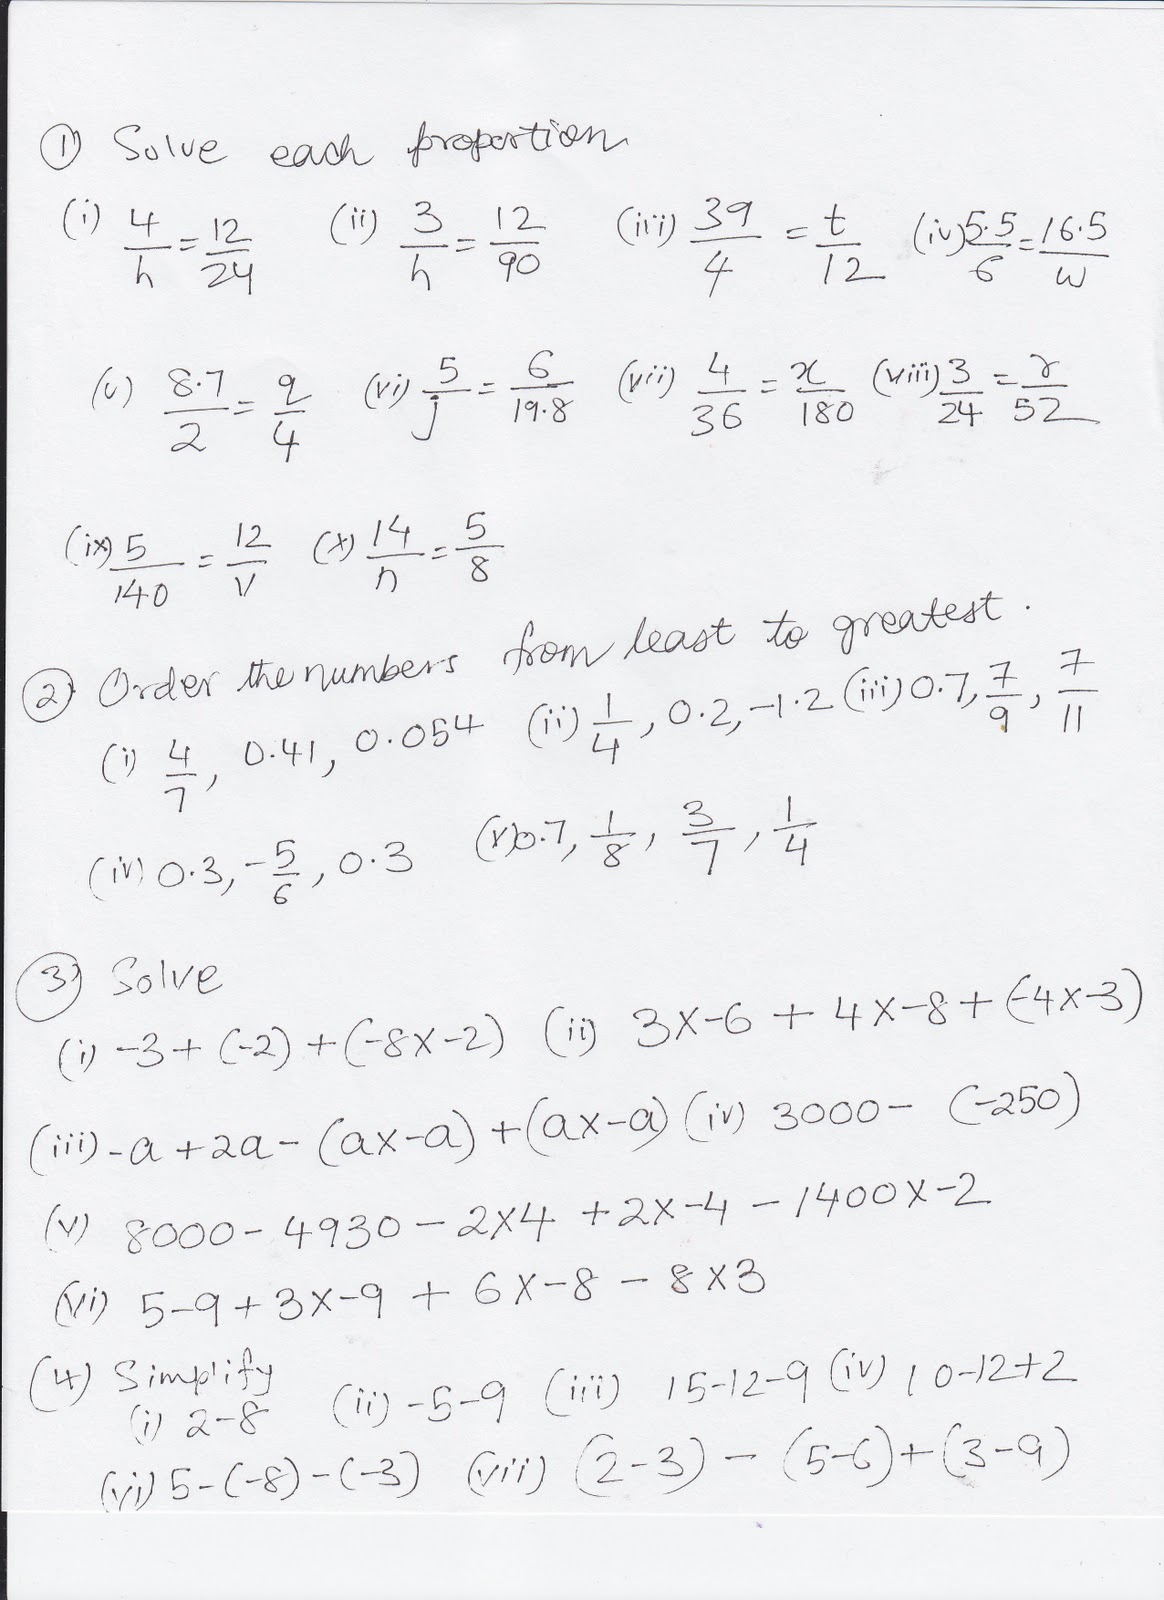 1) Solve each proportion
(i) 4/h = 12/24 (ii) 3/h = 12/90 (iii) 39/4 = t/12 (iv) 5.5/6 = 16.5/w
(v) 8.7/2 = q/4 (vi) 5/j = 6/19.8 (vii) 4/36 = x/180 (viii) 3/24 = r/52
(ix) 5/140 = 12/V (x) 14/n = 5/8
2) Order the numbers from least to greatest.
(i) 4/7, 0.41, 0.054 (ii) 1/4, 0.2, -1.2 (iii) 0.7, 7/9, 7/11
(iv) 0.3, -5/6, 0.3 (v) 0.7, 1/8, 3/7, 1/4
3) Solve
(i) -3 + (-2) + (-8x-2) (ii) 3x-6 + 4x-8 + (-4x-3)
(iii) -a + 2a - (ax-a) + (ax-a) (iv) 3000 - (-250)
(v) 8000 - 4930 - 2x4 + 2x-4 - 1400x-2
(vi) 5-9 + 3x-9 + 6x-8 - 8x3
(4) Simplify
(i) 2-8 (ii) -5-9 (iii) 15-12-9 (iv) 10-12+2
(vi) 5-(-8)-(-3) (vii) (2-3) - (5-6) + (3-9)